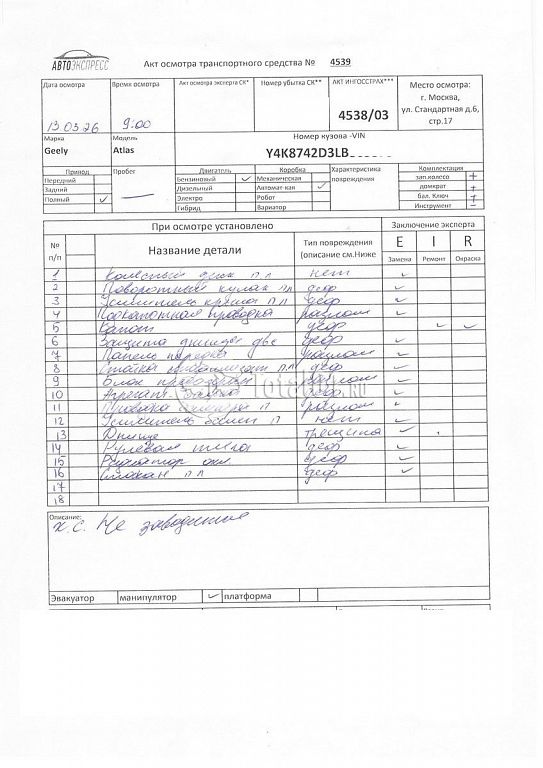 АВТОЭКСПРЕСС
Акт осмотра транспортного средства № 4539
Дата осмотра
Время осмотра
Акт осмотра эксперта СК*
Номер убытка СК**
АКТ ИНГОССТРАХ***
Место осмотра:
г. Москва,
ул. Стандартная д.6,
стр.17
13.03.26
9:00
4538/03
Марка
Модель
Номер кузова -VIN
Geely
Atlas
Y4K8742D3LB
Привод
Пробег
Двигатель
Коробка
Характеристика
повреждения
Комплектация
Передний
Бензиновый ✓
Механическая
зап.колесо +
Задний
Дизельный
Автомат-кая ✓
домкрат +
Полный ✓
—
Электро
Робот
бал. Ключ +
Гибрид
Вариатор
Инструмент +
При осмотре установлено
Заключение эксперта
№
п/п
Название детали
Тип повреждения
(описание см.Ниже
E I R
Замена Ремонт Окраска
1 Колесный диск п л нет ✓
2 Поворотный кулак п л деф ✓
3 Усилитель крыла п л деф ✓
4 Подкапотная проводка разлом ✓
5 Капот деф ✓ ✓
6 Защита днища две деф ✓
7 Панель передка разлом ✓
8 Стойка стабилизат п л деф ✓
9 Блок разлом ✓
10 деф ✓
11 Проводка п разлом ✓
12 Усилитель п нет ✓
13 Днище трещина ✓
14 Рулевая тяга деф ✓
15 Радиатор охл. деф ✓
16 Стакан п л деф ✓
17
18
Описание:
х.с. Не заводится
Эвакуатор манипулятор ✓ платформа